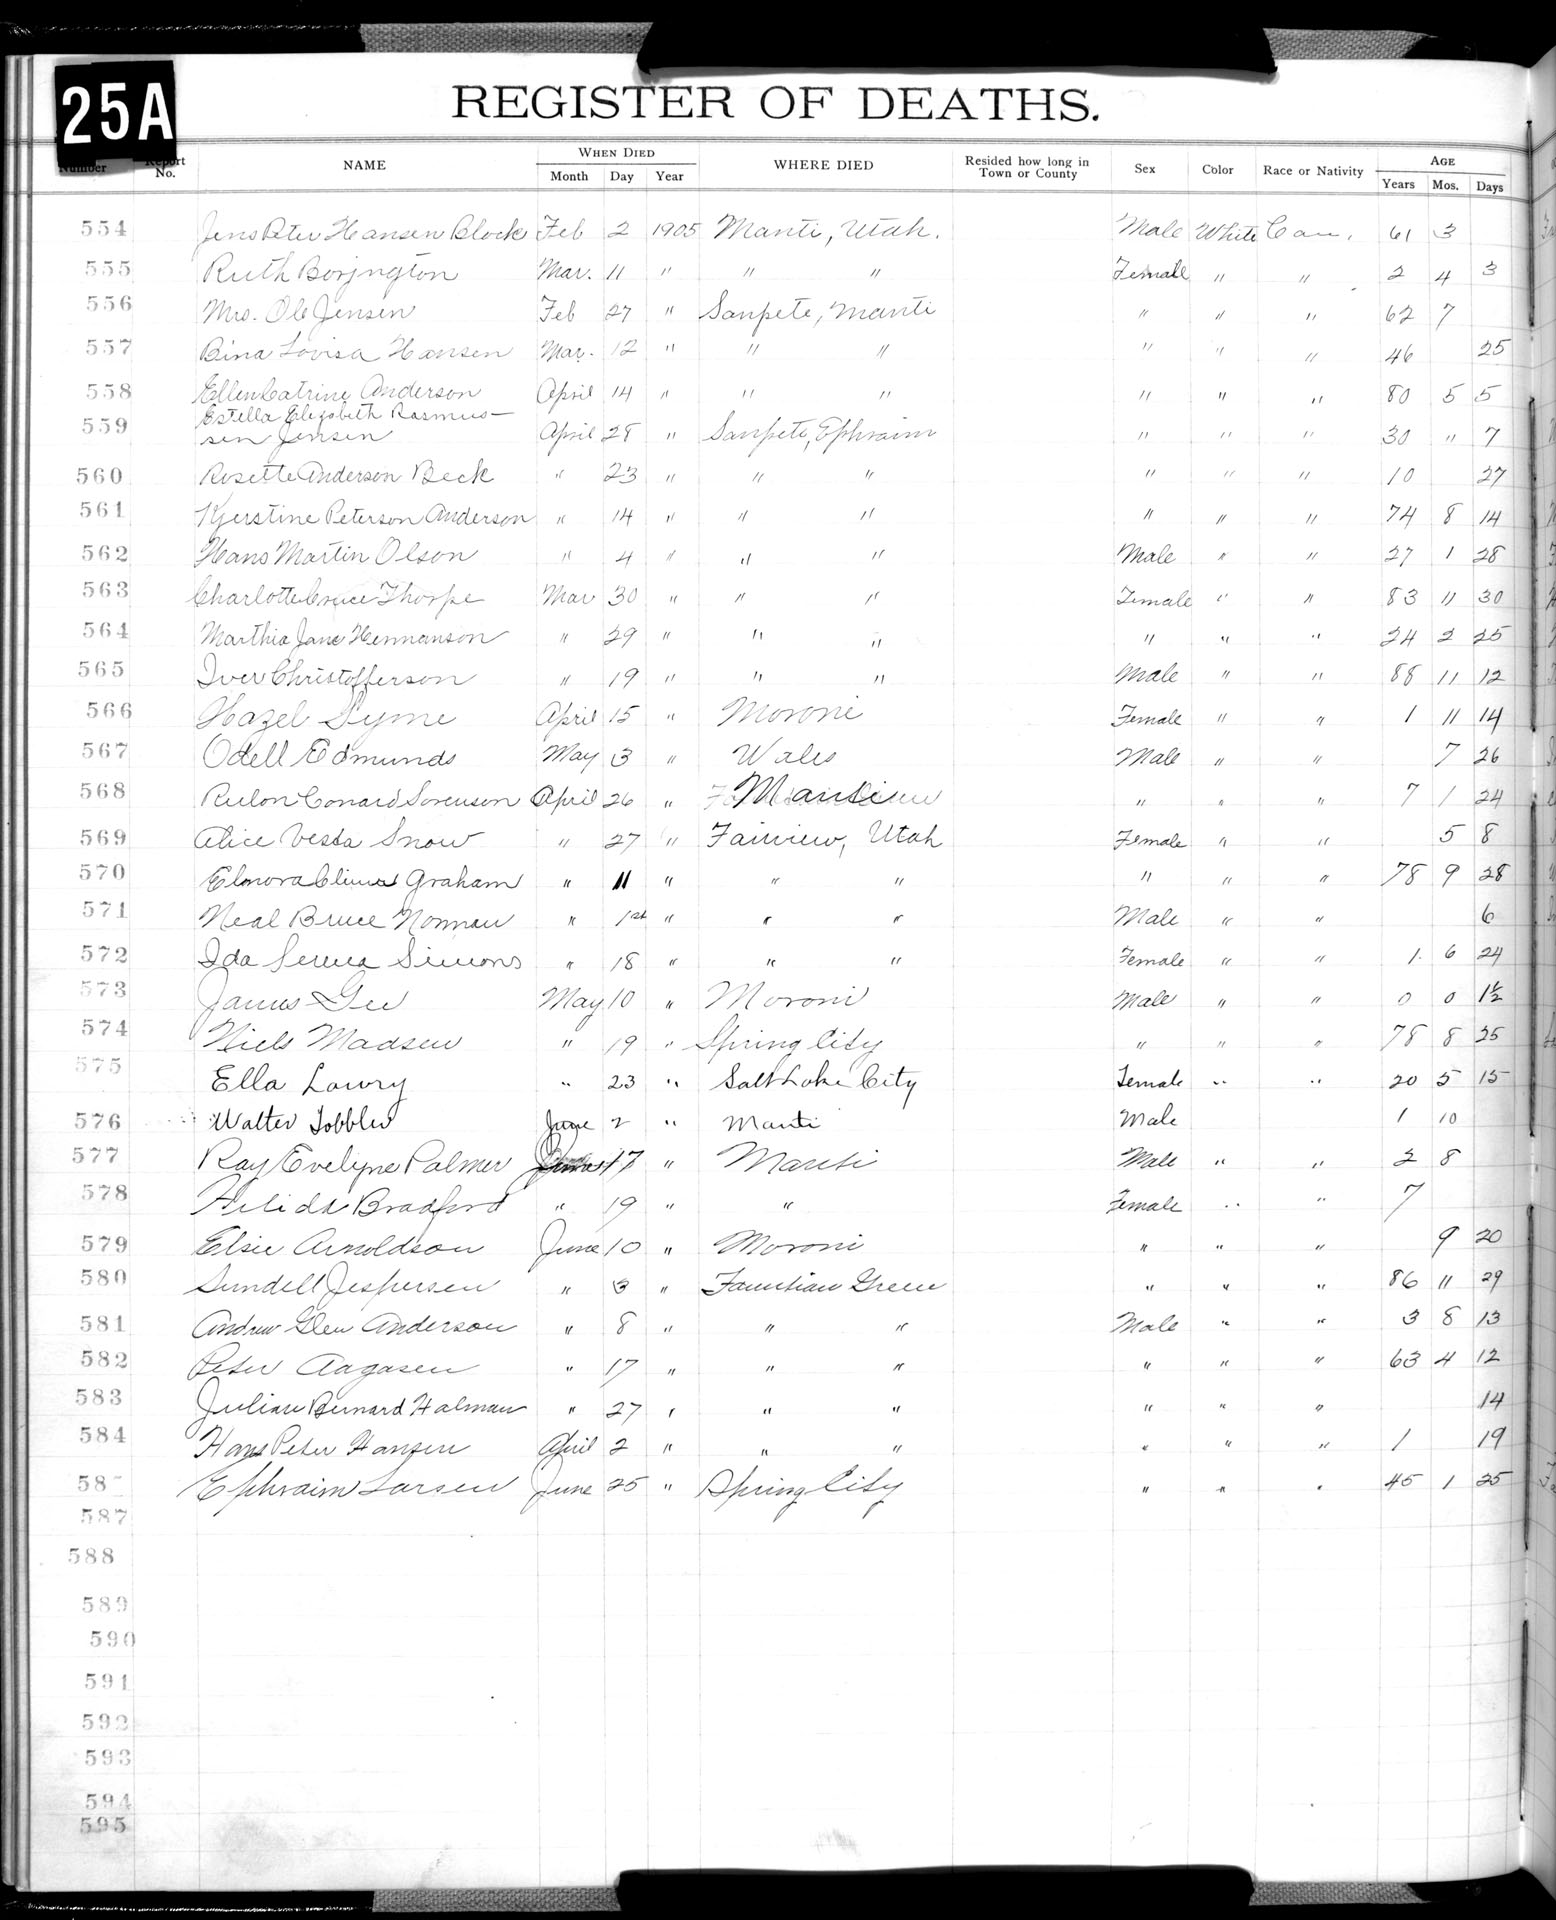 25A
REGISTER OF DEATHS.
Number Report No. NAME WHEN DIED Month Day Year WHERE DIED Resided how long in Town or County Sex Color Race or Nativity AGE Years Mos. Days
554 Jens Peter Hansen Block Feb 2 1905 Manti, Utah. Male White Cau. 61 3
555 Ruth Borjngton Mar. 11 " " " Female " " 2 4 3
556 Mrs. Ole Jensen Feb 27 " Sanpete, Manti " " " 62 7
557 Bina Lovisa Hansen Mar. 12 " " " " " " 46 25
558 Ellen Catrine Anderson April 14 " " " " " " 80 5 5
559 Estella Elizabeth Rasmus-
sen Jensen April 28 " Sanpete, Ephraim " " " 30 " 7
560 Rosette Anderson Beck " 23 " " " " " " 10 27
561 Kjerstine Peterson Anderson " 14 " " " " " " 74 8 14
562 Hans Martin Olson " 4 " " " Male " " 27 1 28
563 Charlotte Cruce Thorpe Mar 30 " " " Female " " 83 11 30
564 Marthia Jane Hermanson " 29 " " " " " " 24 2 25
565 Iver Christofferson " 19 " " " Male " " 88 11 12
566 Hazel Syme April 15 " Moroni Female " " 1 11 14
567 Odell Edmunds May 3 " Wales Male " " 7 26
568 Rulon Conard Sorenson April 26 " Manti " " " 7 1 24
569 Alice Vesta Snow " 27 " Fairview, Utah Female " " 5 8
570 Elnora Graham " 11 " " " " " " 78 9 28
571 Neal Bruce Norman " 1st " " " Male " " 6
572 Ida Serena Simons " 18 " " " Female " " 1 6 24
573 James Gee May 10 " Moroni Male " " 0 0 1½
574 Niels Madsen " 19 " Spring City " " " 78 8 25
575 Ella Lowry " 23 " Salt Lake City Female " " 20 5 15
576 Walter Tobbler June 2 " Manti Male 1 10
577 Ray Evelyne Palmer 17 " Manti Male " " 2 8
578 Bradford " 19 " " Female " " 7
579 Elsie Arnoldson June 10 " Moroni " " " 9 20
580 Sundell Jespersen " 3 " Fountian Green " " " 86 11 29
581 Andrew Glen Anderson " 8 " " " Male " " 3 8 13
582 Peter Aagasen " 17 " " " " " " 63 4 12
583 Julian Bernard Halman " 27 " " " " " " 14
584 Hans Peter Hansen April 2 " " " " " " 1 19
58 Ephraim Larsen June 25 " Spring City " " " 45 1 25
587
588
589
590
591
592
593
594
595